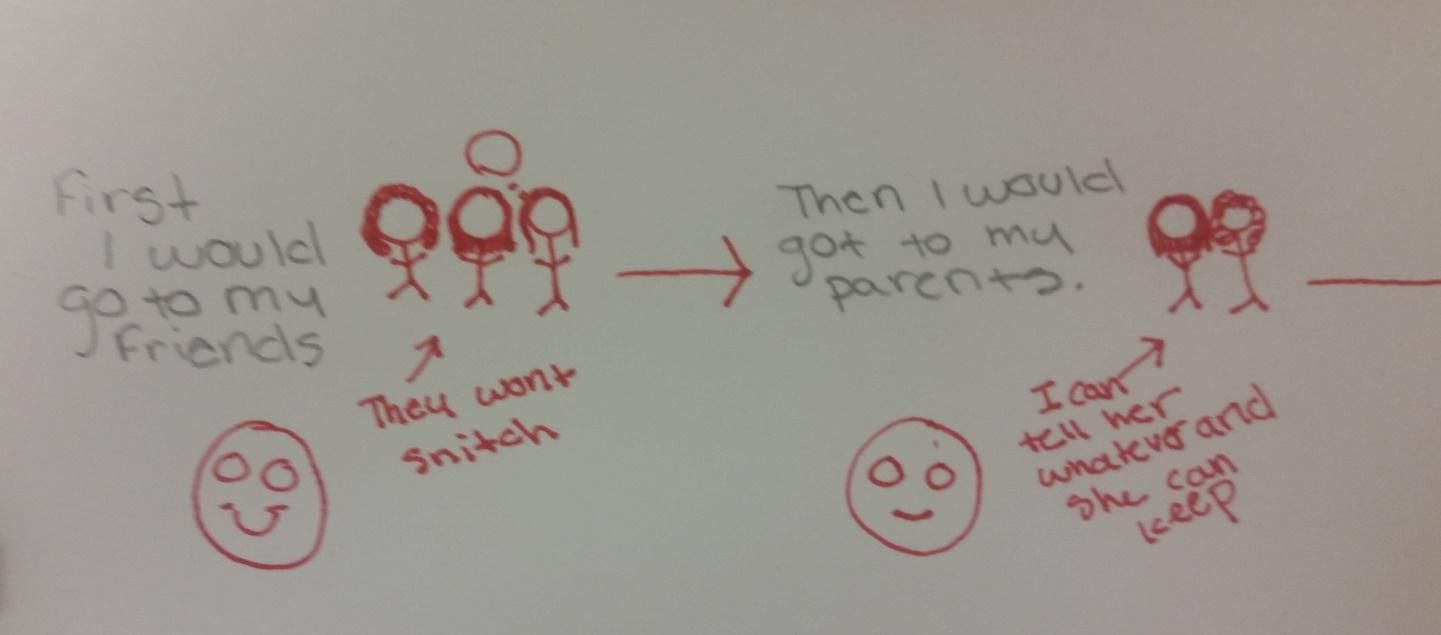 First
I would
go to my
friends
They wont
snitch
Then I would
got to my
parents.
I can
tell her
whatever and
she can
keep